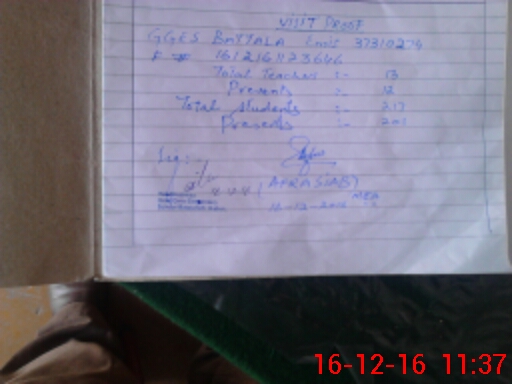 VISIT PROOF
GGES BATTALA Emis 37310274
F # 1612161123646
Total Teachers :- 13
Presents :- 12
Total Students :- 217
Presents :- 201
Sig:
AFRASIAB
MEA
16-12-16 11:37